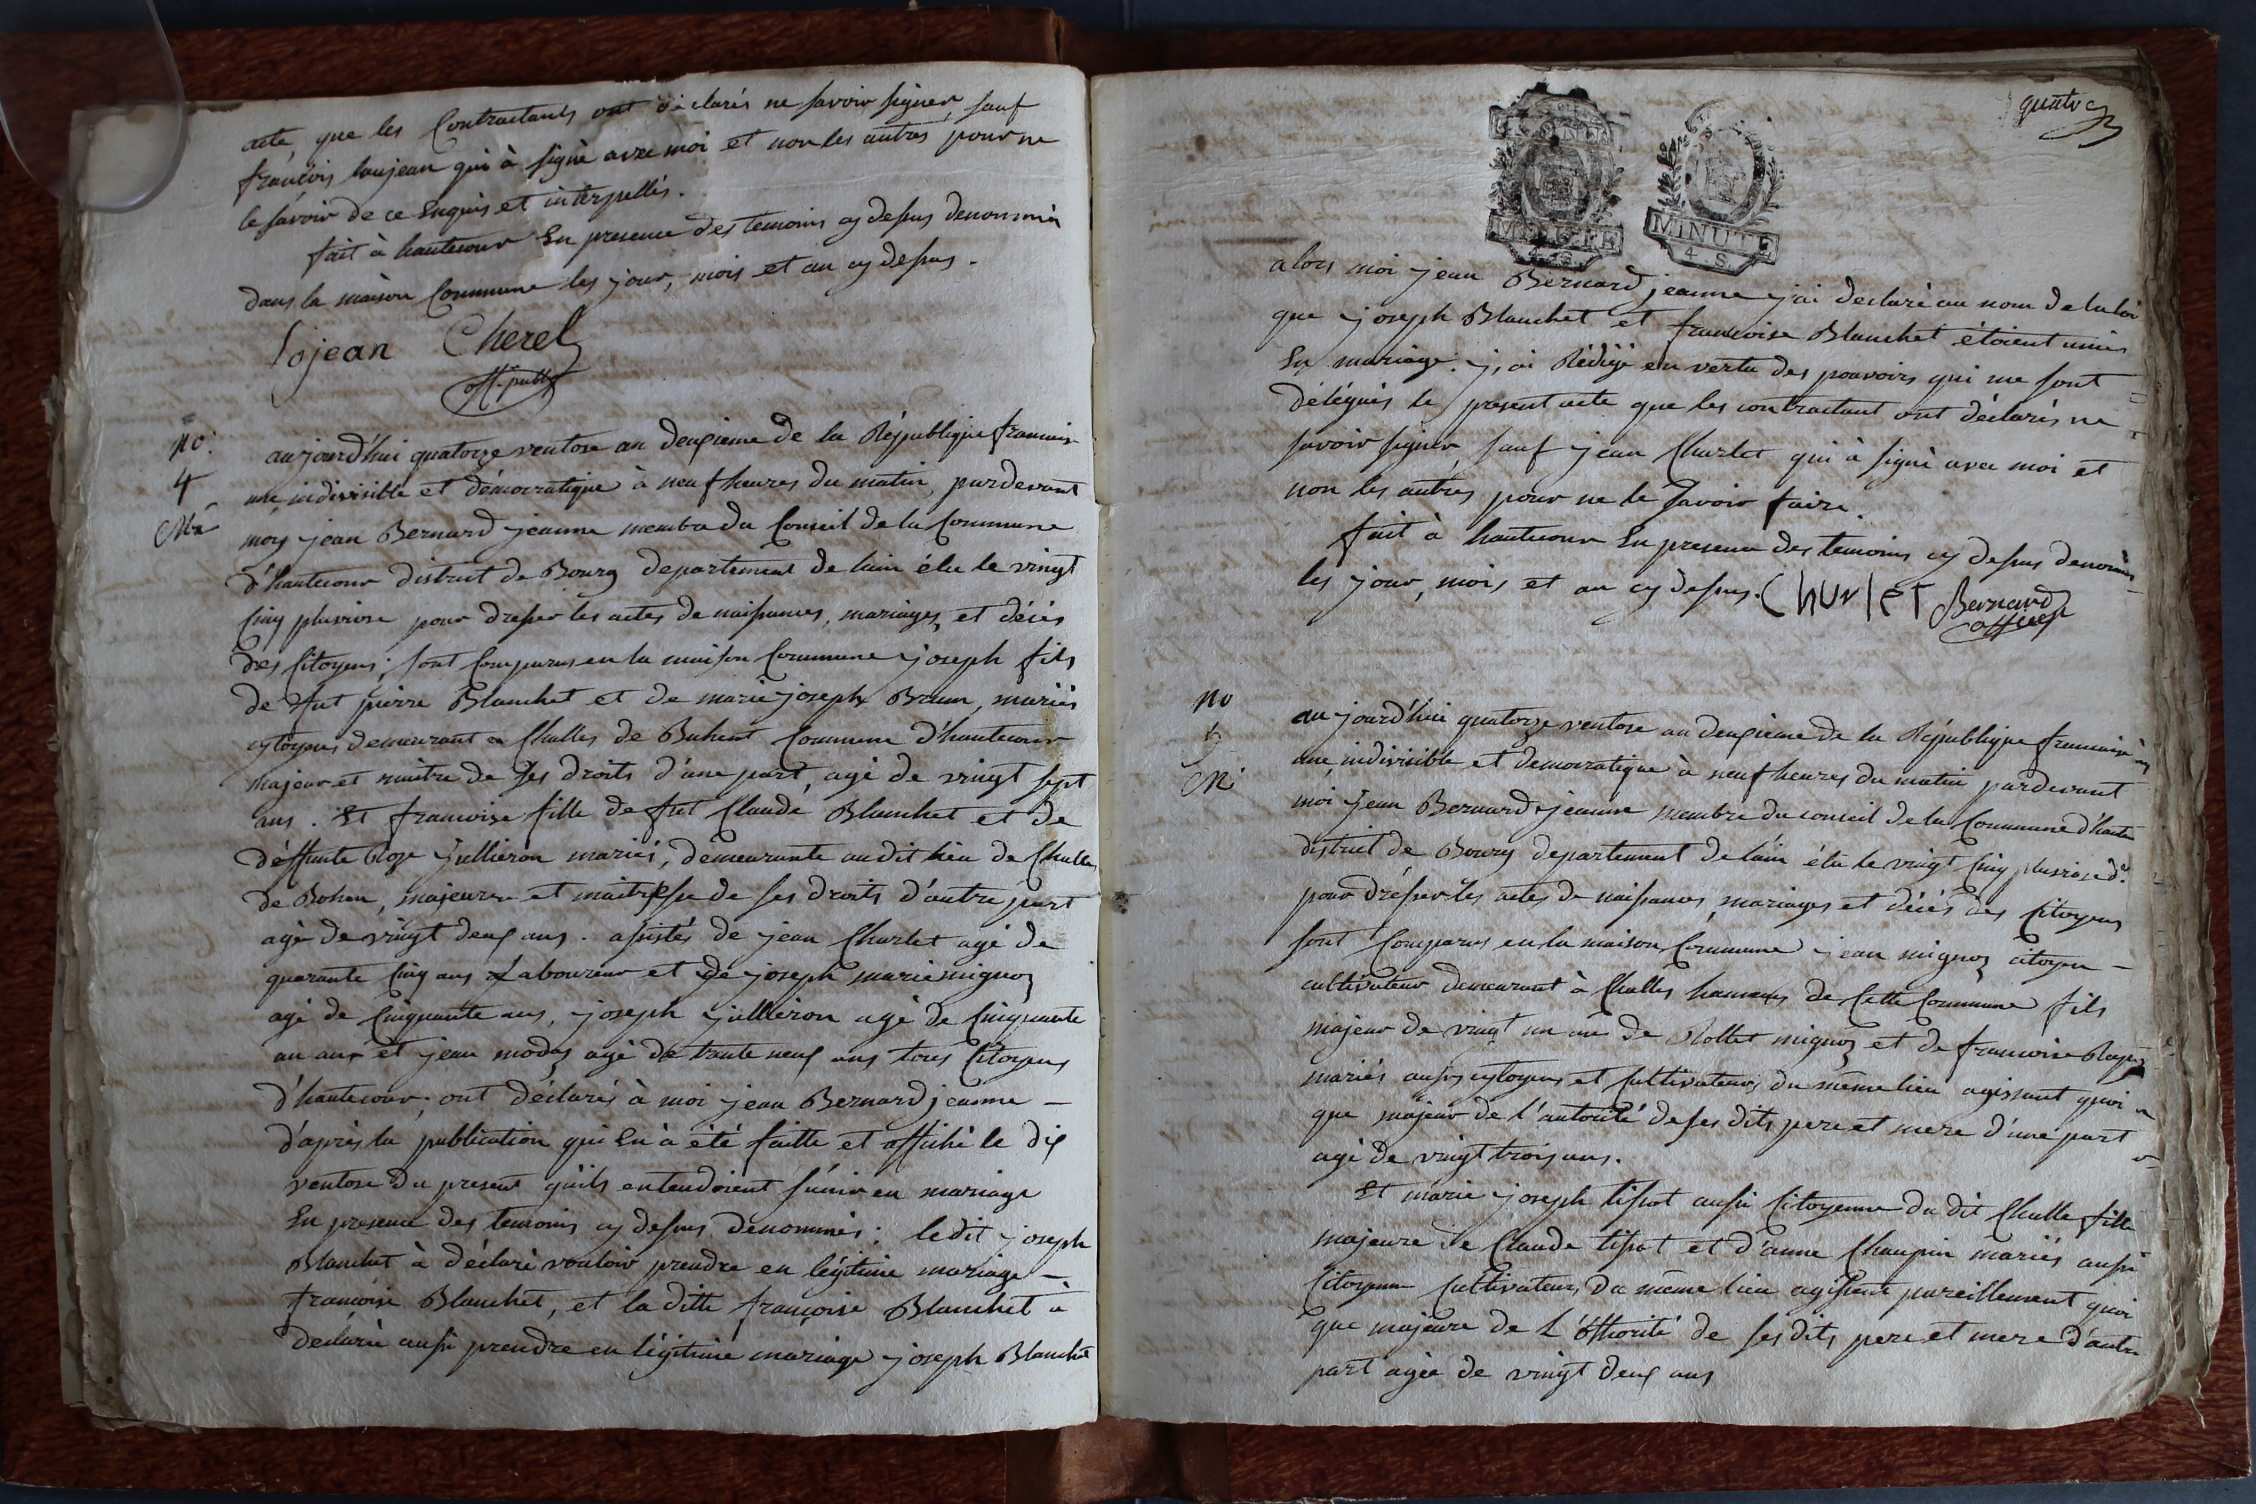 acte, que les Contractants ont déclarés ne savoir signer, sauf
françois loujean qui à signé avec moi et non les autres pour ne
le savoir de ce Enquis et interpellés.
fait à hautecour En presence des temoins cy dessus denommés
dans la maison Commune les jour, mois et an cy dessus.
Lojean Cherel
off. public
no.
4
Me
aujourd'hui quatorze ventose an deuxieme de la République francaise
une indivisible et démocratique à neuf heures du matin, pardevant
moy jean Bernard jeanne membre du Conseil de la Commune
d'hautecour district de Bourg departement de l'ain élu le vingt
cinq pluviose pour dresser les actes de naissances, mariages, et décès
des Citoyens; sont Comparus en la maison Commune joseph fils
de fut pierre Blanchet et de marie joseph Brun, mariés
cytoyens demeurant a Challes de Buhent Commune d'hautecour
majeur et maitre de ses droits d'une part, agé de vingt sept
ans. Et francoise fille de fut Claude Blanchet et de
déffunte Roze Jullieron mariés, demeurante au dit lieu de Challes
de Bohan, majeure et maitresse de ses droits d'autre part
agé de vingt deux ans. assistés de jean Charlet agé de
quarante Cinq ans Laboureur et de joseph marie mignoz
agé de Cinquante ans, joseph Jullieron agé de Cinquante
un ans et jean modas agé de trante neuf ans tous Citoyens
d'hautecour; ont déclarés à moi jean Bernard jeanne –
d'après la publication qui En à été faitte et affiché le dix
ventose du present qu'ils entendoient s'unir en mariage
En presence des temoins cy dessus denommés: le dit joseph
Blanchet à déclaré vouloir prendre en légitime mariage –
françoise Blanchet, et la ditte françoise Blanchet à
declarée aussi prendre en légitime mariage joseph Blanchet
quatre
MINUTE
4. S.
MINUTE
4. S.
alors moi jean Bernard jeanne j'ai declaré au nom de la loi
que joseph Blanchet et francoise Blanchet étoient unis
En mariage. j'ai Rédigé en vertu des pouvoirs qui me sont
délégués le present acte que les contractant ont déclarés ne
savoir signer, sauf jean Charlet qui à signé avec moi et
non les autres pour ne le Savoir faire.
fait à hautecour En presence des temoins cy dessus denommés
les jour, mois et an cy dessus. Charlet Bernard
officier
no
5
M
aujourd'hui quatorze ventose an deuxieme de la République francaise
une, indivisible et democratique à neuf heures du matin pardevant
moi jean Bernard jeanne membre du conseil de la Commune d'haute
district de Bourg departement de l'ain élu le vingt Cinq pluviose d.
pour drésser les actes de naissances, mariages et décès des Citoyens
sont Comparus en la maison Commune jean mignoz citoyen –
cultivateur demeurant à Challes hameau de Cette Commune fils
majeur de vingt un ans de Rollet mignoz et de francoise
mariés aussy cytoyens et Cultivateurs du même lieu agissant quoi
que majeur de l'autorité de ses dits pere et mere d'une part
agé de vingt trois ans.
Et marie joseph tissot aussi Citoyenne du dit Challe fille
majeure de Claude tissot et d'anne Chanpin mariés aussi
Citoyens Cultivateurs du même lieu agissant pareillement quoi
que majeure de L'othorité de ses dits pere et mere d'autre
part agée de vingt deux ans